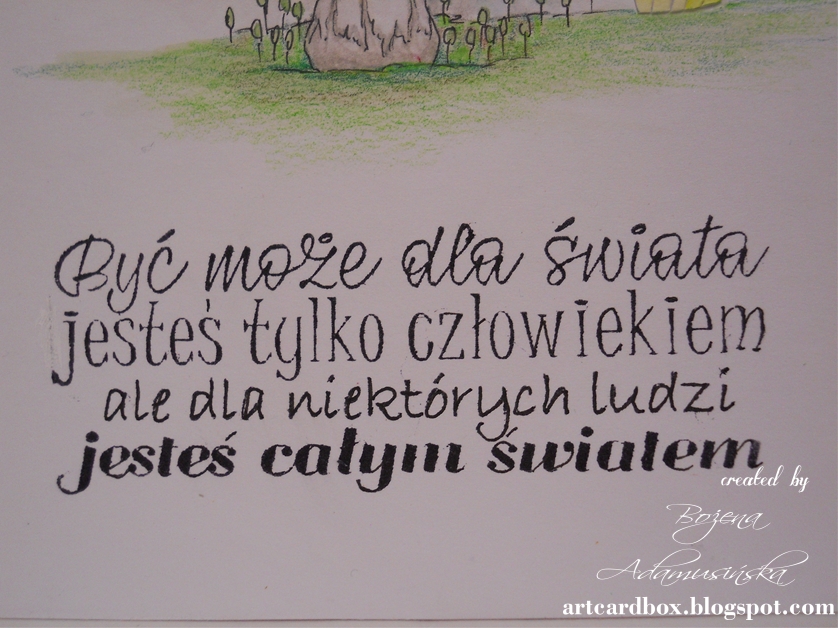 Być może dla świata
jesteś tylko człowiekiem
ale dla niektórych ludzi
jesteś całym światem
created by
Bożena
Adamusińska
artcardbox.blogspot.com